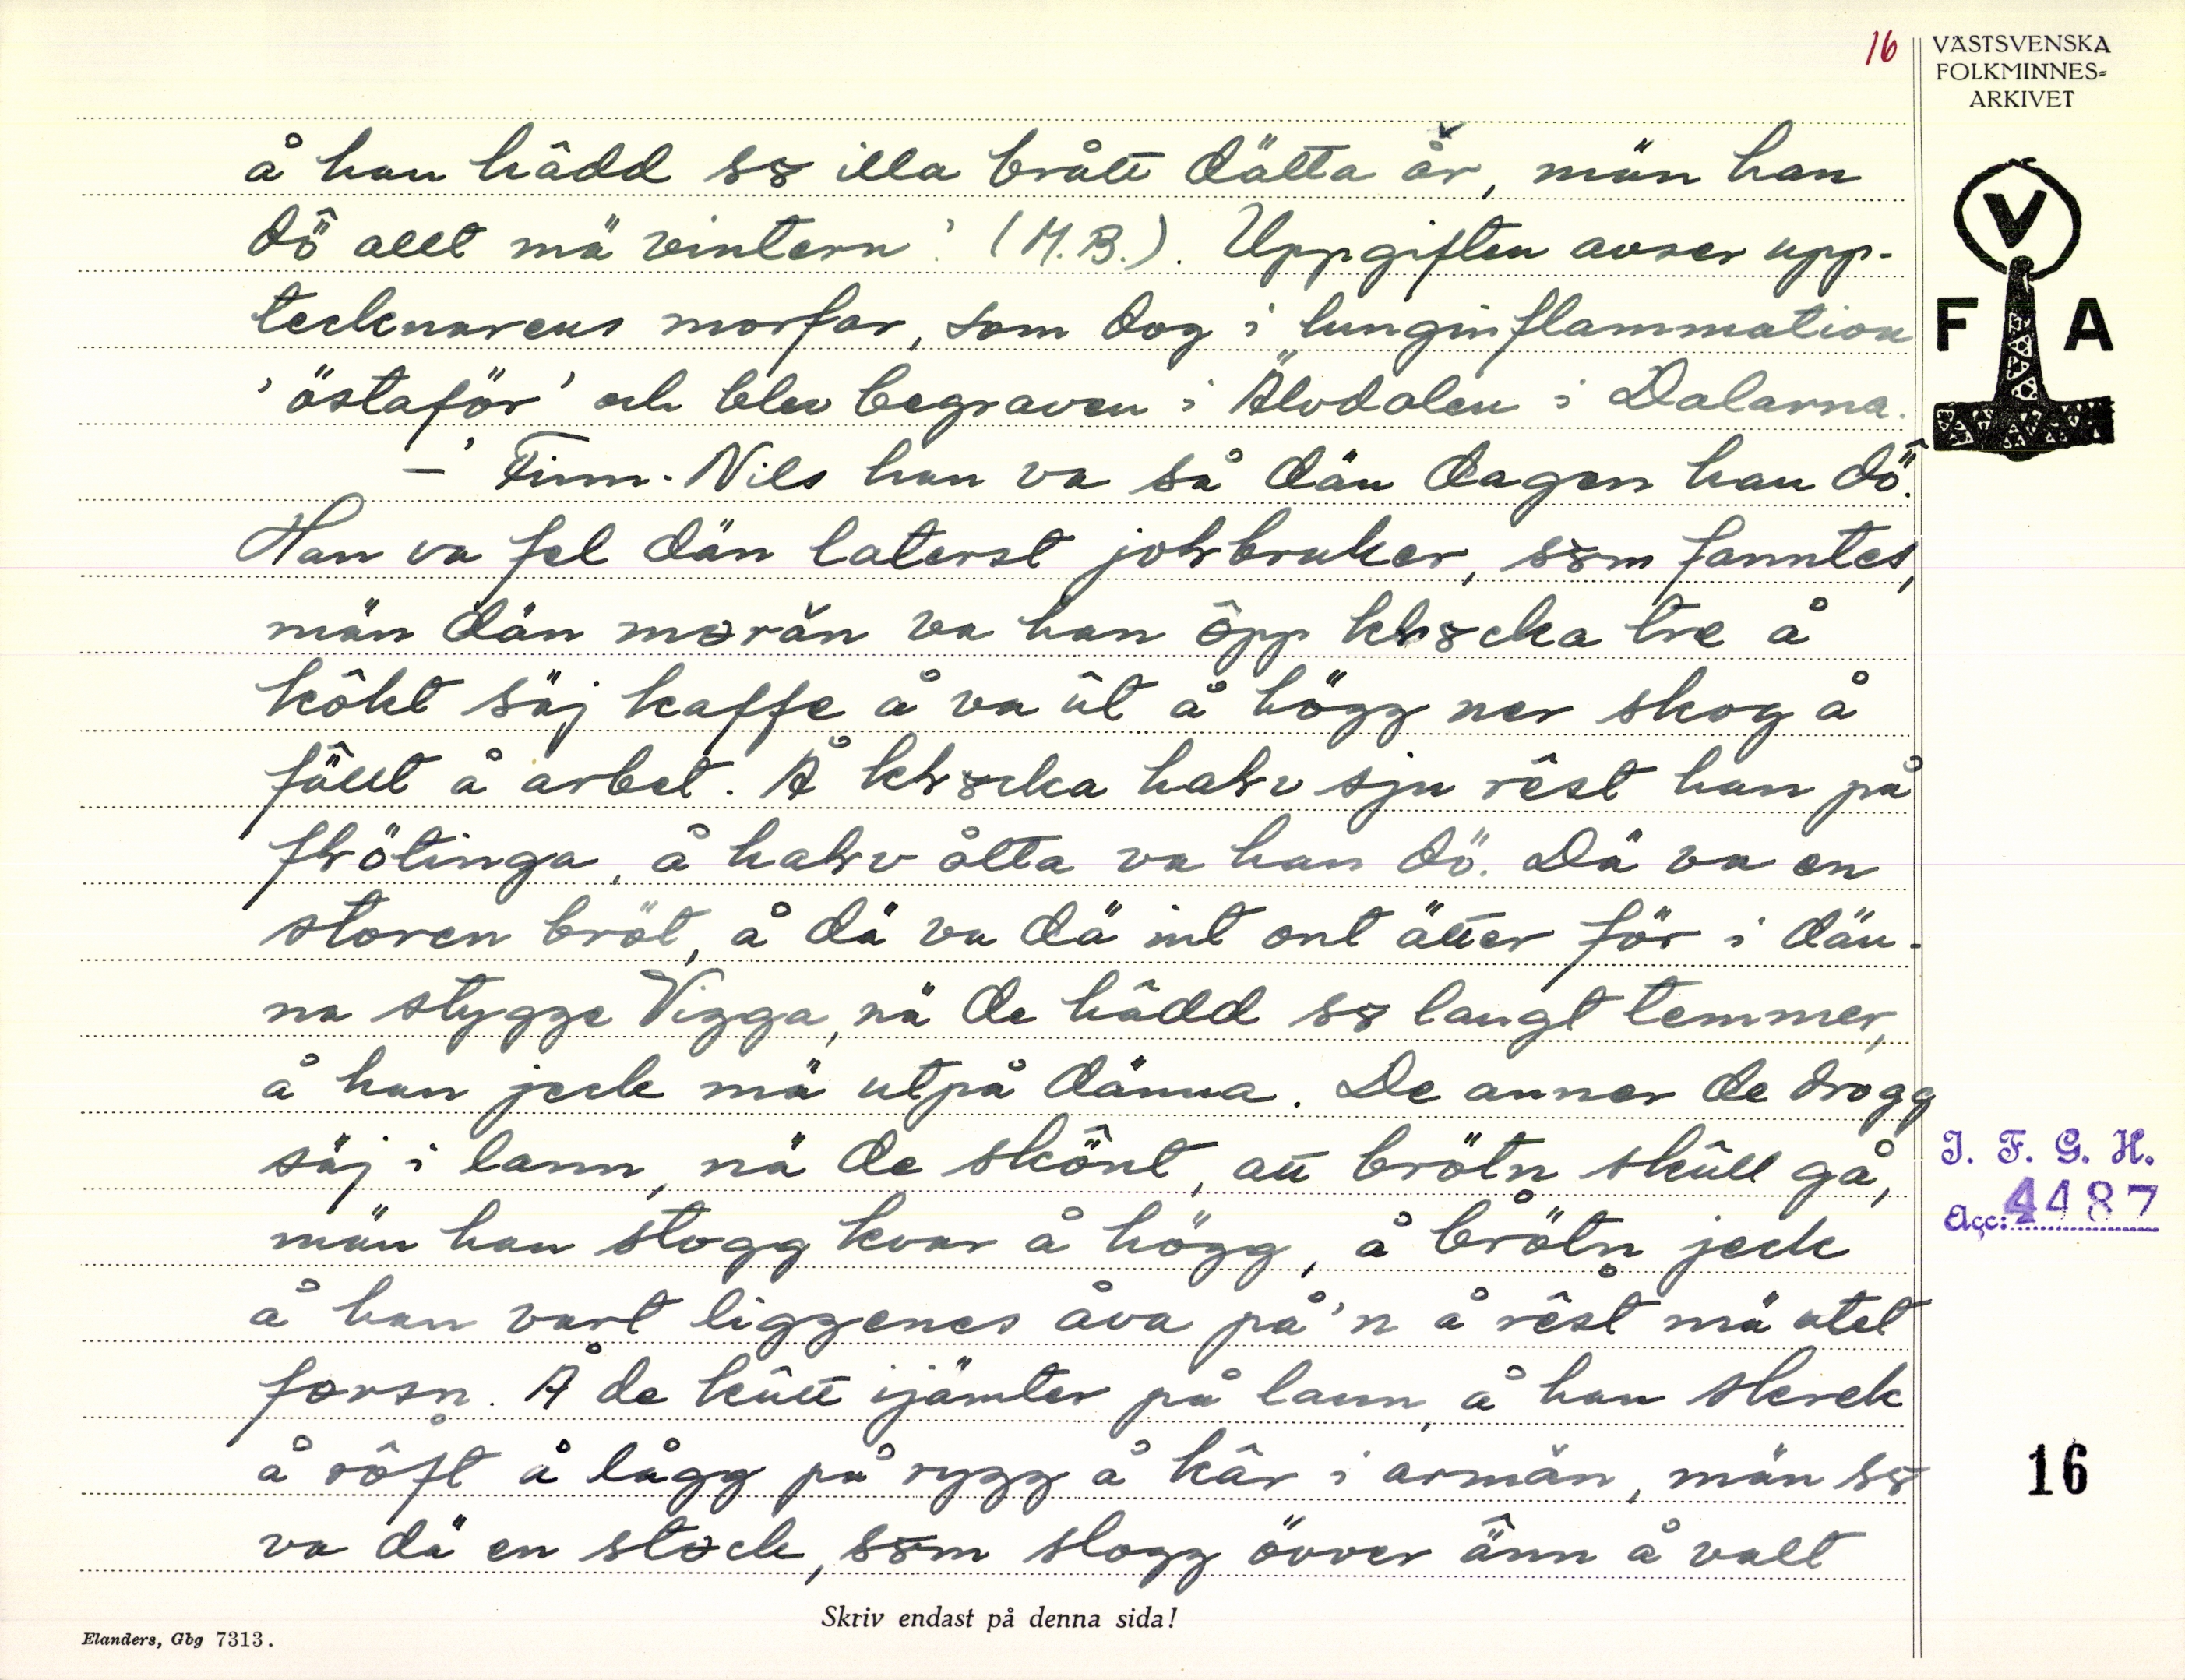 16
VÄSTSVENSKA
FOLKMINNES=
ARKIVET
V
F A
å han hâdd sꝍ illa brått dätta år, män han
dö̂ allt mä vintern' (M.B.). Uppgiften avser upp-
tecknarens morfar, som dog i lunginflammation
'östaför' och blev begraven i Älvdalen i Dalarna.
–' Finn-Nils han va så dän dagen han dö̂.
Han va fel dän laterst johbruker, sꝍm fanntes,
män dän morän va han ôpp khꝍcka tre å
kôkt säj kaffe å va ût å högg ner skog å
fä̂llt å arbet. Å khꝍcka hahv sju rêst han på
fhötinga, å hahv åtta va han dö. Dä va en
storen bröt, å dä va dä int ont ätter för i dän-
na stygge Vigga, nä de hâdd sꝍ langt temmer,
å han jeck mä utpå dänna. De anner de drogg
säj i lann, nä de skö̂nt, att brötn̥ skûll gå,
män han stogg kvar å högg, å brötn̥ jeck
å han vart liggenes åva på'n å rêst mä utet
forsn̥. Å de kûtt ijämter på lann, å han skrek
å rôft å lågg på rygg å kâr i armän, män sꝍ
va dä en stock, sꝍm slogg övver ä̂nn å valt
J. F. G. H.
Acc: 4487
16
Skriv endast på denna sida!
Elanders, Gbg 7313.